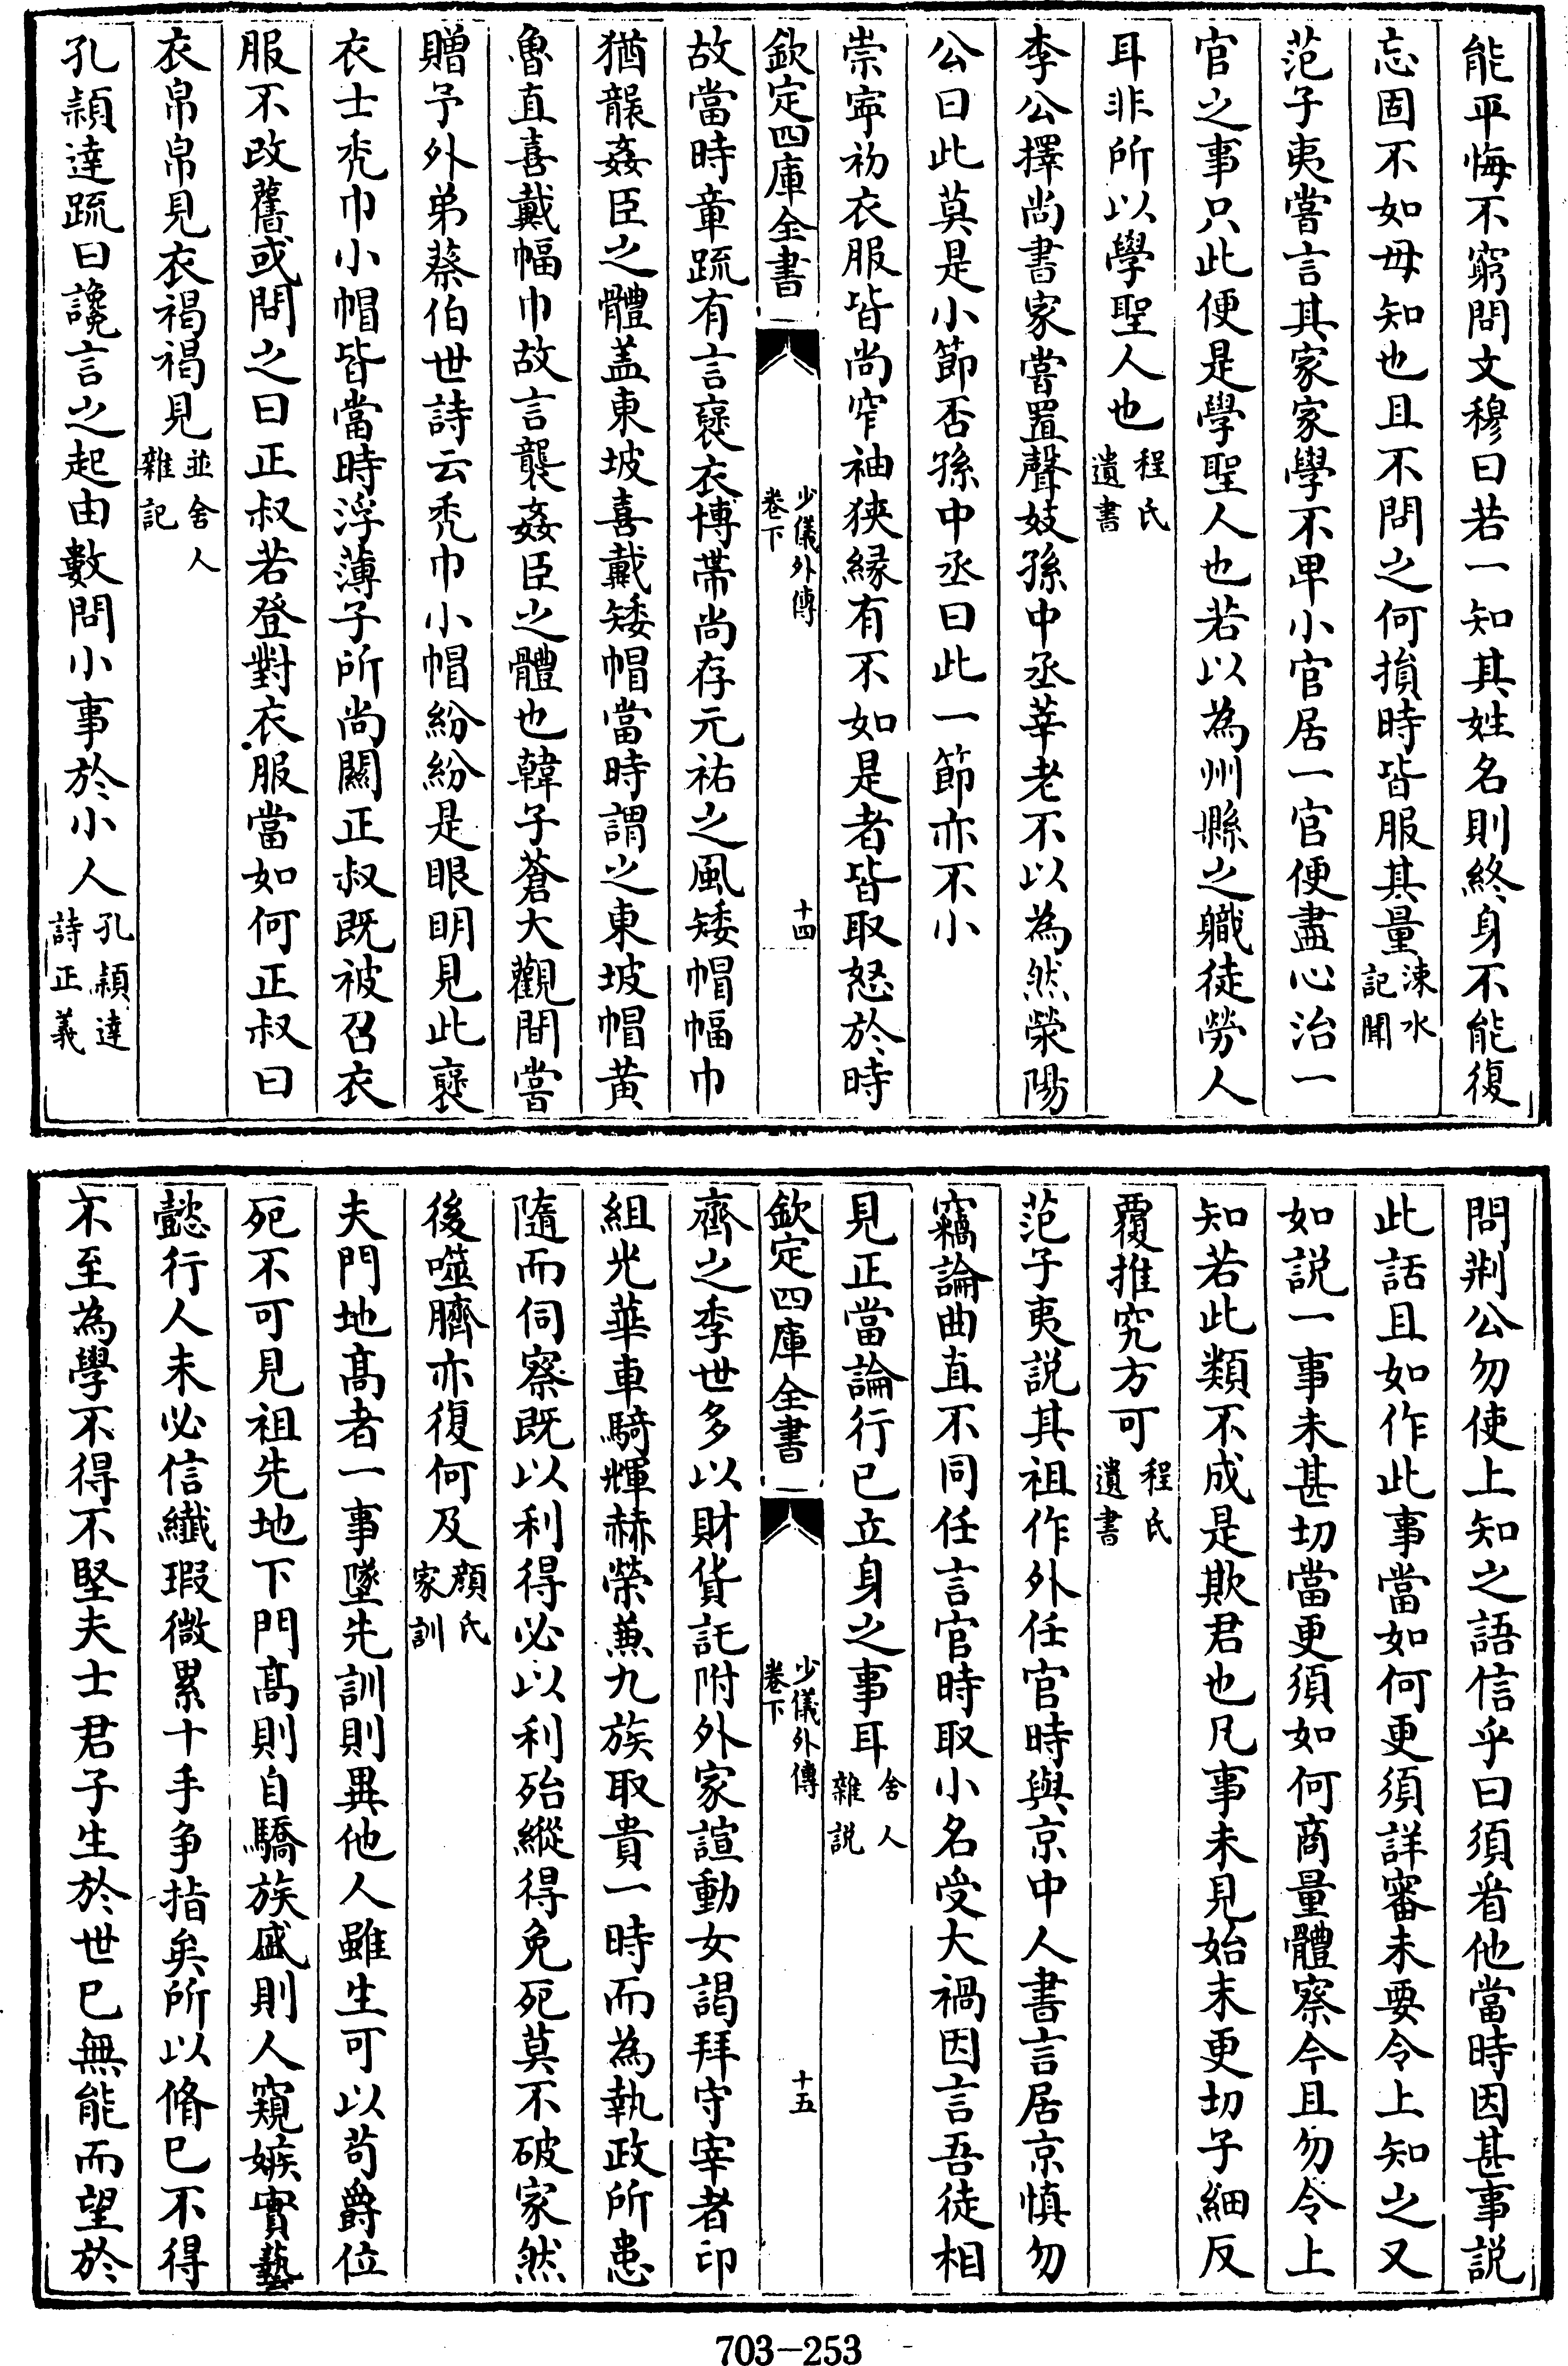 能平悔不窮問文穆曰若一知其姓名則終身不能復
忘固不如毋知也且不問之何損時皆服其量涑水記聞
范子夷嘗言其家家學不卑小官居一官便盡心治一
官之事只此便是學聖人也若以為州縣之職徒勞人
耳非所以學聖人也程氏遺書
李公擇尚書家嘗置聲妓孫中丞莘老不以為然滎陽
公曰此莫是小節否孫中丞曰此一節亦不小
崇寧初衣服皆尚窄袖狹緣有不如是者皆取怒於時
欽定四庫全書
少儀外傳
卷下
十四
故當時章疏有言褒衣博帶尚存元祐之風矮帽幅巾
猶襲姦臣之體盖東坡喜戴矮帽當時謂之東坡帽黃
魯直喜戴幅巾故言襲姦臣之體也韓子蒼大觀間嘗
贈予外弟蔡伯世詩云禿巾小帽紛紛是眼明見此褒
衣士禿巾小帽皆當時浮薄子所尚關正叔既被召衣
服不改舊或問之曰正叔若登對衣服當如何正叔曰
衣帛帛見衣褐褐見並舍人雜記
孔穎達疏曰讒言之起由數問小事於小人孔穎達詩正義
問荆公勿使上知之語信乎曰須看他當時因甚事説
此話且如作此事當如何更須詳審未要令上知之又
如説一事未甚切當更須如何商量體察今且勿令上
知若此類不成是欺君也凡事未見始末更切子細反
覆推究方可程氏遺書
范子夷説其祖作外任官時與京中人書言居京慎勿
竊論曲直不同任言官時取小名受大禍因言吾徒相
見正當論行已立身之事耳舍人雜説
欽定四庫全書
少儀外傳
卷下
十五
齊之季世多以財貨託附外家諠動女謁拜守宰者印
組光華車騎輝赫榮兼九族取貴一時而為執政所患
隨而伺察既以利得必以利殆縱得免死莫不破家然
後噬臍亦復何及顔氏家訓
夫門地髙者一事墜先訓則異他人雖生可以茍爵位
死不可見祖先地下門髙則自驕族盛則人窺嫉實藝
懿行人未必信纖瑕微累十手争指矣所以脩已不得
不至為學不得不堅夫士君子生於世已無能而望於
703-253